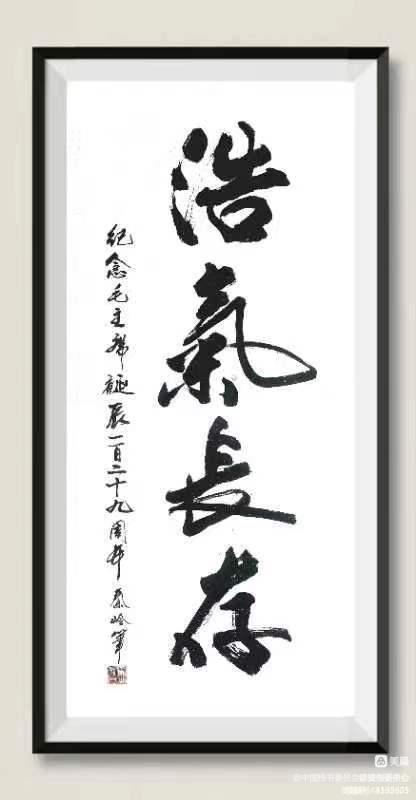 浩氣長存
纪念毛主席誕辰一百二十九周年 泰岭笔
美篇